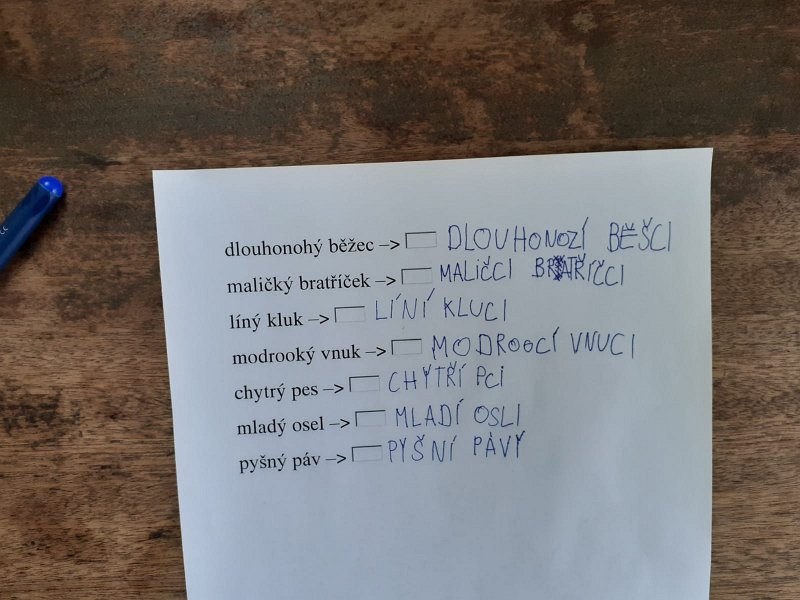 dlouhonohý běžec –> DLOUHONOZÍ BĚŠCI
maličký bratříček –> MALIČCI BRATŘÍČCI
líný kluk –> LÍNÍ KLUCI
modrooký vnuk –> MODROOCÍ VNUCI
chytrý pes –> CHYTŘÍ PCI
mladý osel –> MLADÍ OSLI
pyšný páv –> PYŠNÍ PÁVÝ